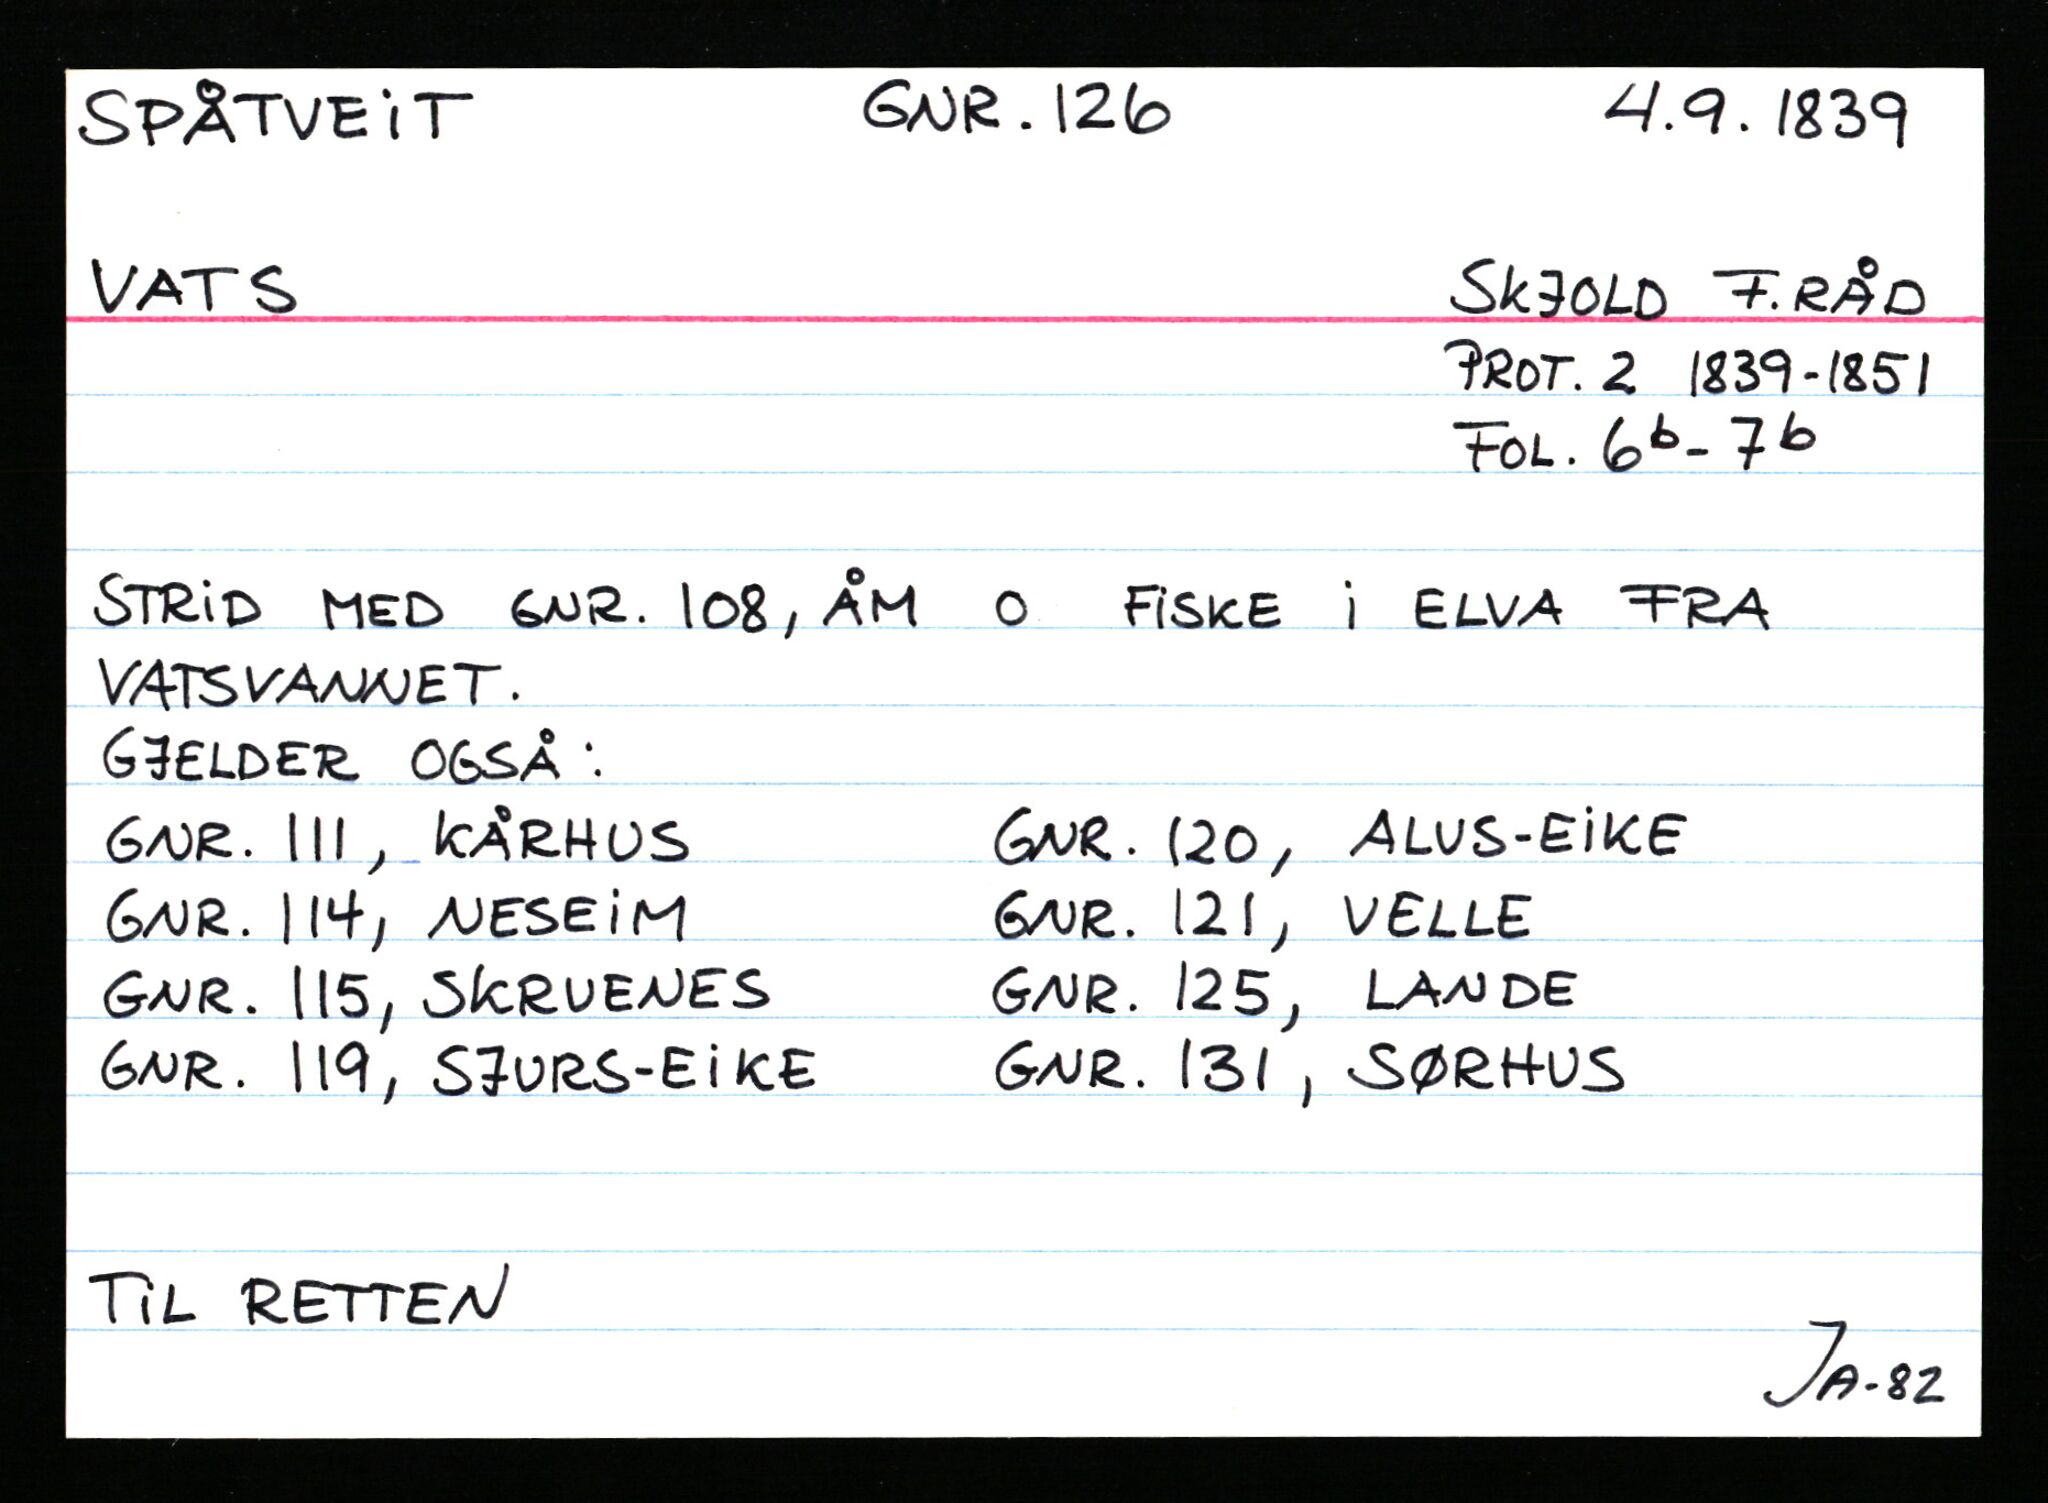 SPÅTVEIT GNR. 126 4.9. 1839
VATS SKJOLD F.RÅD
PROT. 2 1839-1851
FOL. 6b - 7b
STRID MED GNR. 108, ÅM O FISKE I ELVA FRA
VATSVANNET.
GJELDER OGSÅ:
GNR. 111, KÅRHUS GNR. 120, ALUS-EIKE
GNR. 114, NESEIM GNR. 121, VELLE
GNR. 115, SKRUENES GNR. 125, LANDE
GNR. 119, SJURS-EIKE GNR. 131, SØRHUS
TIL RETTEN
JA-82